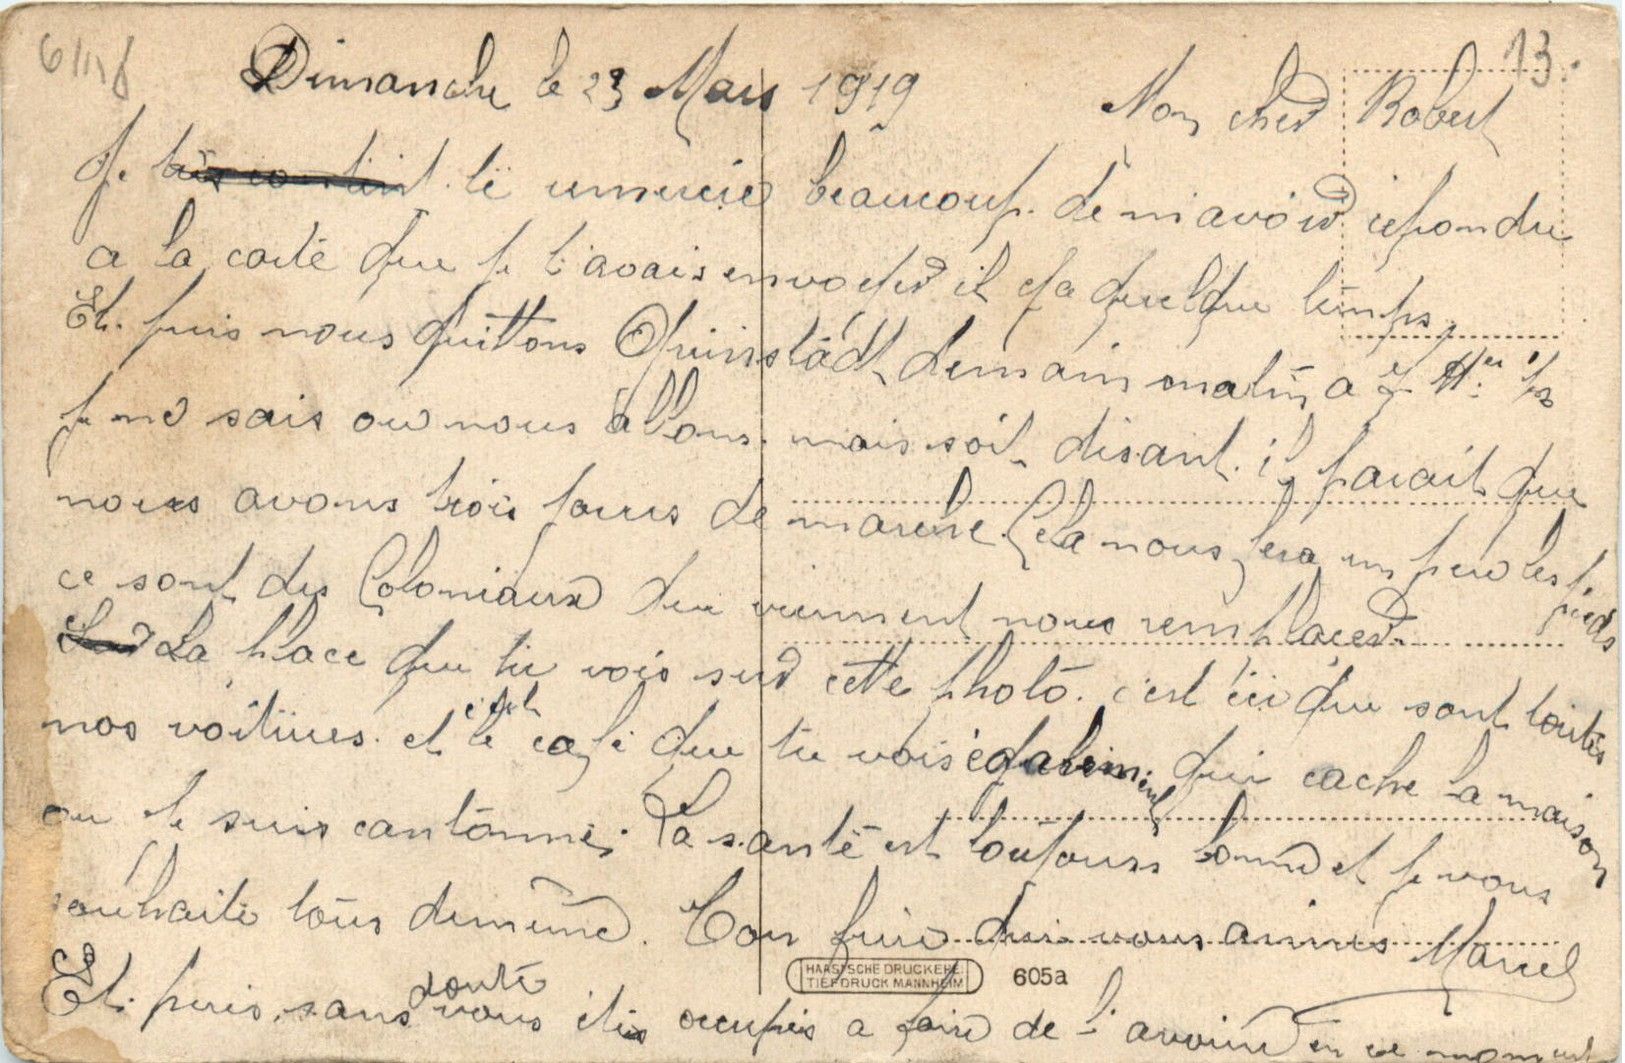 13.
Dimanche le 23 Mars 1919 Mon cher Robert
Je te remercie beaucoup. de m'avoir repondu
a la carte que je t'avais envoyer il y a quelque temps.
Et. puis nous quittons demain matin a 7 Hres 1/2
je ne sais ou nous allons. mais soit disant. il parait que
nous avons trois jours de marche. Cela nous fera un peu les pieds
ce sont des Coloniaux qui viennent nous remplacer.
La place que tu vois sur cette photo. c'est ici que sont toutes
nos voitures. et c'est le café que tu vois également qui cache la maison
ou je suis cantonné. La santé est toujours bonne et je vous
souhaite tous de meme. Ton frère qui vous aimes Marcel
HAAS'SCHE DRUCKEREI
TIEFDRUCK MANNHEIM
605a
Et. puis. sans doute vous etes occupés a faire de l'avoine en ce moment